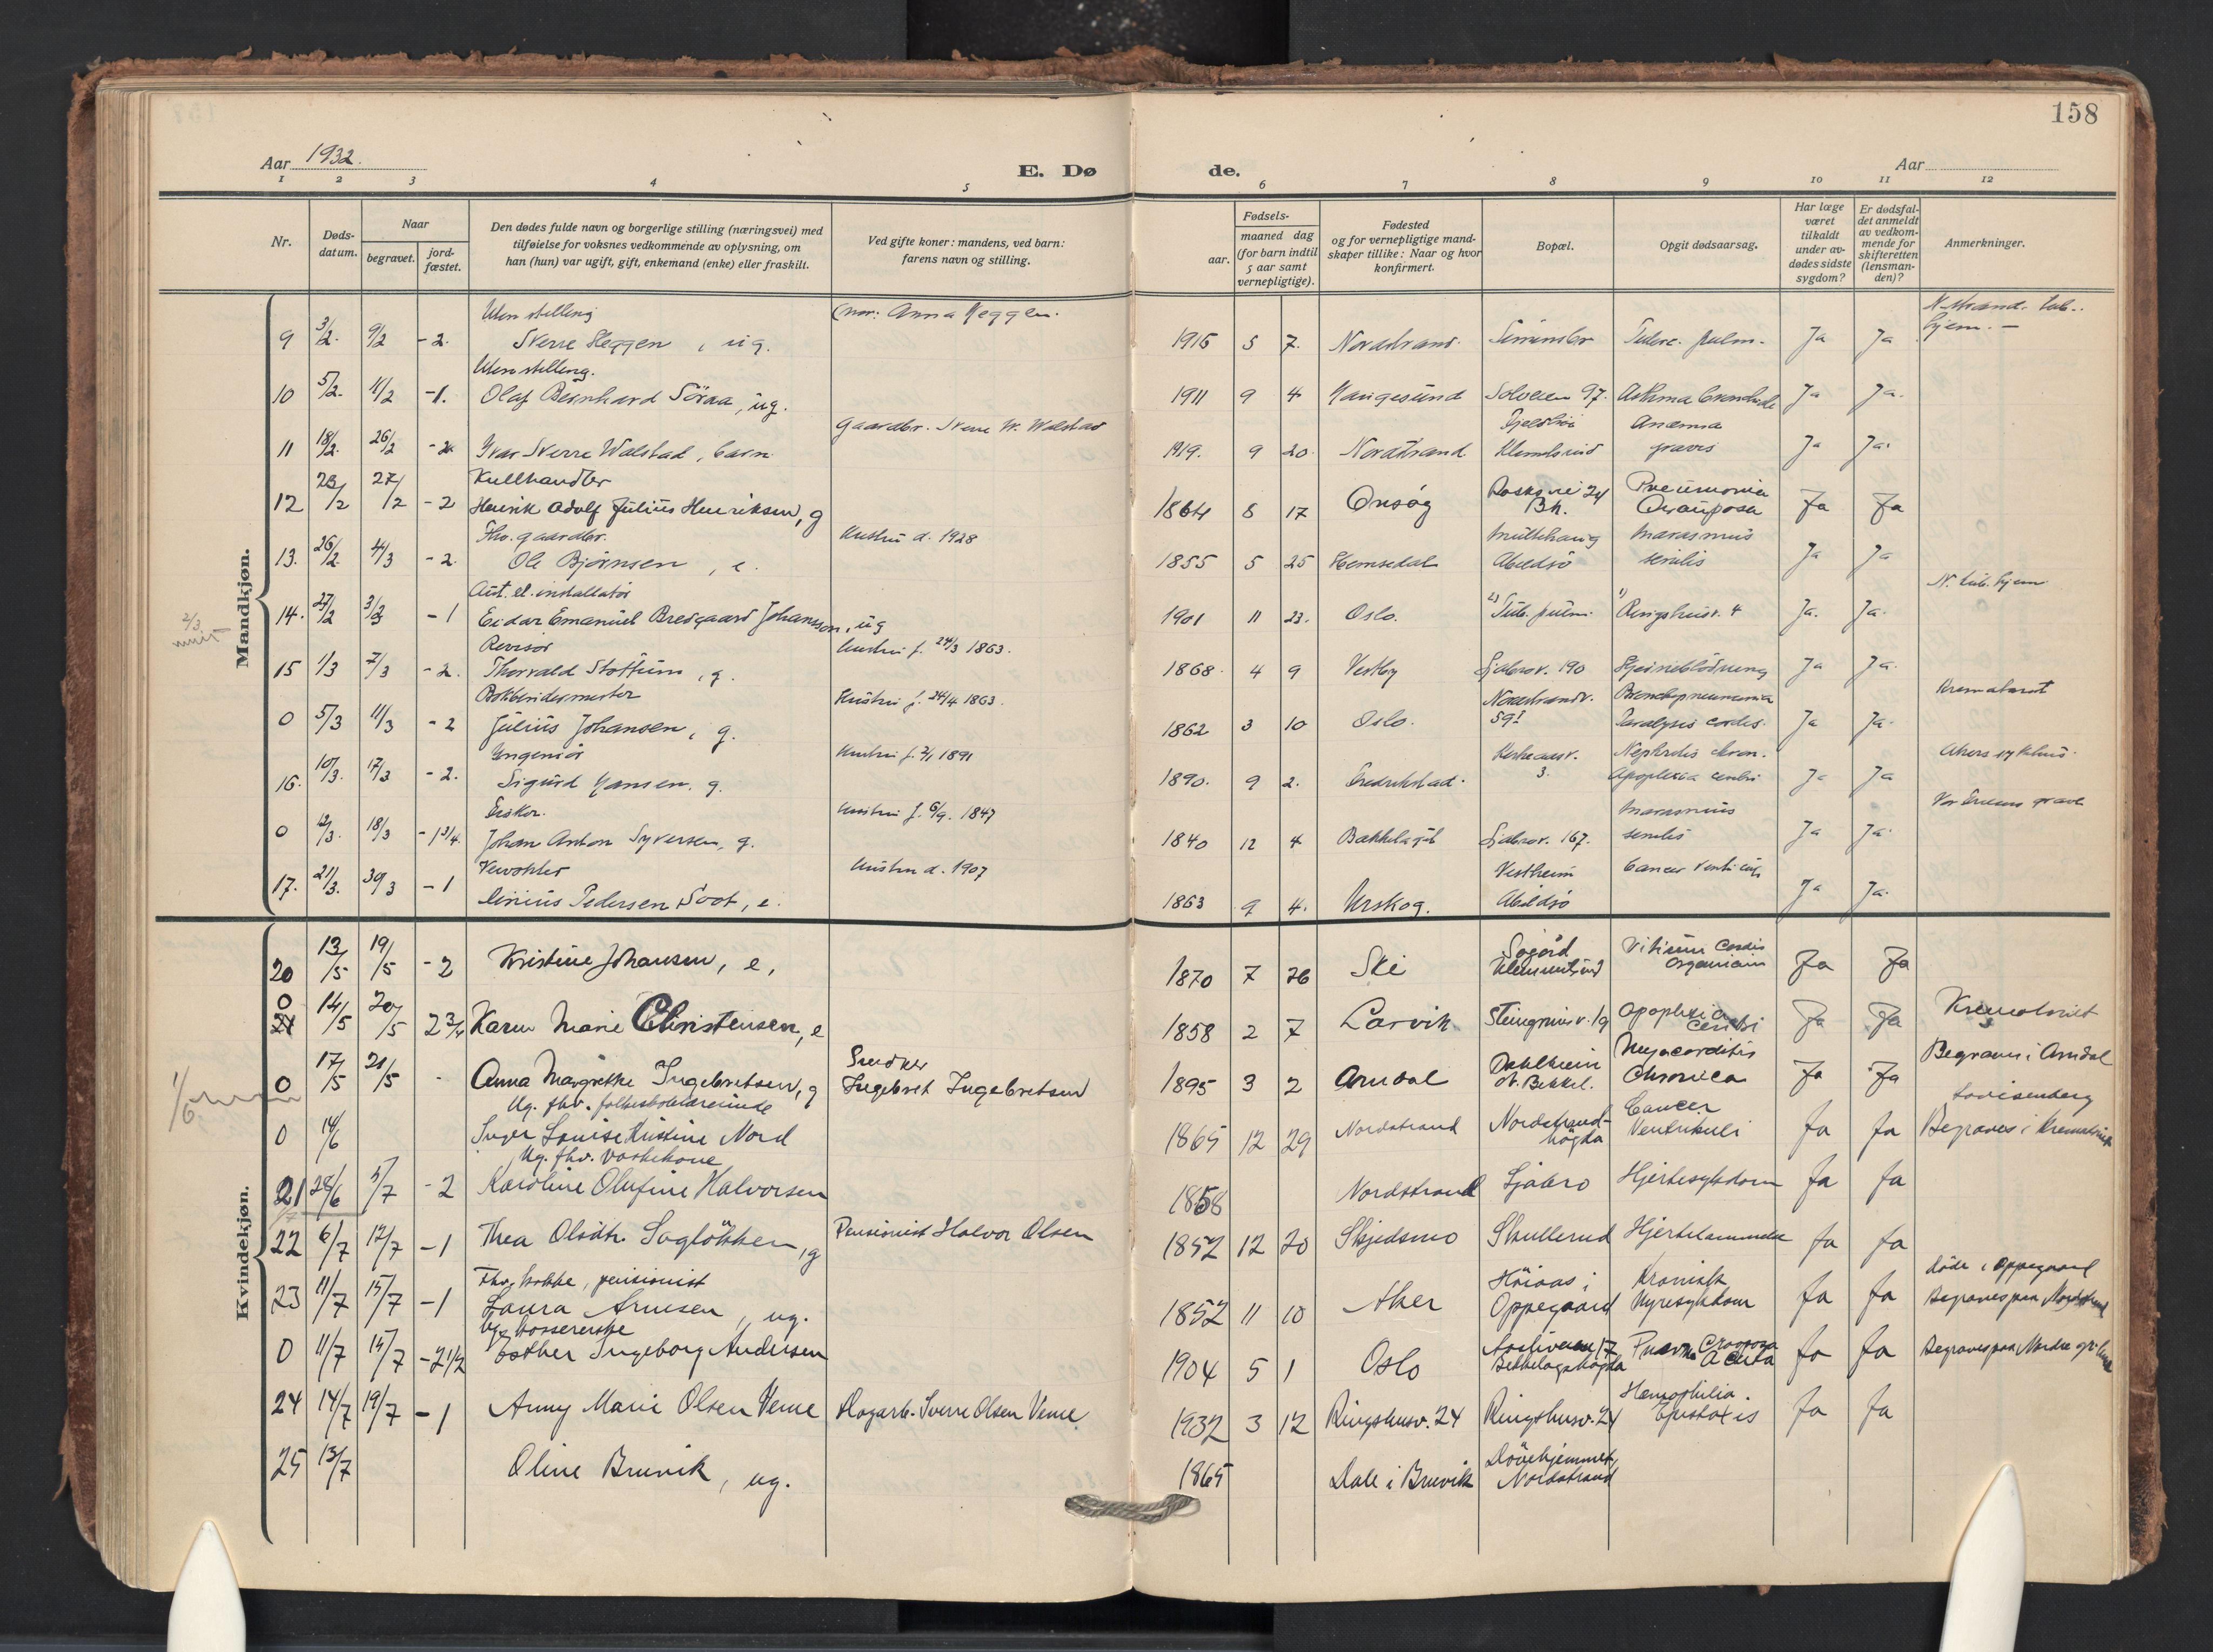 158
Aar 1932.
E. Dø de.
Aar
1 2 3 4 5 6 7 8 9 10 11 12
Nr.
Døds-datum.
Naar
begravet.
jord-fæstet.
Den dødes fulde navn og borgerlige stilling (næringsvei) med
tilføielse for voksnes vedkommende av oplysning, om
han (hun) var ugift, gift, enkemand (enke) eller fraskilt.
Ved gifte koner: mandens, ved barn:
farens navn og stilling.
Fødsels-
aar.
maaned dag
(for barn indtil
5 aar samt
vernepligtige).
Fødested
og for vernepligtige mand-
skaper tillike: Naar og hvor
konfirmert.
Bopæl.
Opgit dødsaarsag.
Har læge
været
tilkaldt
under av-
dødes sidste
sygdom?
Er dødsfal-
det anmeldt
av vedkom-
mende for
skifteretten
(lensman-
den)?
Anmerkninger.
Mandkjøn.
Uten stilling (mor: Anna Heggen. N.strand. tub.
9 3/2. 9/2 - 2. Sverre Heggen, ug. 1915 5 7. Nordstrand. pulm. Ja Ja hjem. —
Uten stilling.
10 5/2. 11/2 - 1. Olaf Bernhard Söraa, ug. 1911 9 4 Haugesund Solveien 97. Asthma bronchiale Ja Ja.
Gaardbr. Sverre W. Walstad Anæmia
11 18/2. 26/2 Ivar Sverre Walstad, barn 1919. 9 20 Nordstrand Klemetsrud gravis Ja Ja.
Kullhandler 24 Pneumonia
12 23/2 27/2 - 2 Henrik Adolf Julius Henriksen, g 1864 8 17 Onsøy Bh. Ja Ja
Fhv. gaardbr. Hustru d. 1928 Marasmus
13. 26/2. 4/3 - 2. Ole Bjørnsen, e. 1855 5 25 Hemsedal Abildsö senilis Ja Ja
Aut. el. installatör N. tub. hjem
14. 27/2 3/3 - 1 Eidar Emanuel Bredgaard Johansson, ug 1901 11 23. Oslo. 2) Tub. pulm. 1) Ringshusv. 4 Ja. Ja.
2/3
Revisor Hustru f. 24/3 1863.
15 1/3 7/3 - 2. Thorvald Stottum, g. 1868. 4 9 Vestby Ljabrov. 190 Hjerneblödning Ja Ja.
Bokbindermester Hustru f. 24/4 1863. Nordstrandv. Bronchopneumonia Krematoriet
0 5/3 11/3 - 2 Julius Johansen, g. 1862 3 10 Oslo. 59 I Paralysis cordis. Ja Ja.
Ingeniör Hustru f. 2/1 1891 Nephritis chron. Akers sykehus.
16. 10/3. 17/3 - 2. Sigurd Hansen, g. 1890. 9 2. Fredrikstad. 3. Apoplexia cerebri Ja Ja
Fisker. Hustru f. 6/9. 1847 Marasmus Vor Frelsers gravl.
0 12/3. 18/3 - 1 3/4. Johan Anton Syversen, g. 1840 12 4 Bækkelaget Ljabrov. 167. senilis Ja Ja.
Hustru d. 1907 Vestheim Cancer ventriculi
17. 21/3. 30/3 - 1 Pedersen Soot, e. 1863 9 4. Urskog. Abildsö Ja Ja.
Kvindekjøn.
Vitium cordis
20 13/5 19/5 - 2 Kristine Johansen, e, 1870 7 26 Ski Klemetsrud organicum Ja Ja
0
21 14/5 20/5 2 3/4 Karen Marie Christensen, e 1858 2 7 Larvik Steingrimsv. 19 Apoplexia cerebri Ja Ja Krematoriet
Snedker Dahlheim Myocarditis Begraves i Arndal
0 17/5 21/5 - Anna Margrethe Ingebretsen, g Ingebret Ingebretsen 1895 3 2 Arndal Ø. Bekkel. Chronica Ja Ja
1/6
Ug. fhv. folkeskolelærerinde Cancer Lovisenberg
0 14/6 Inger Louise Kristine Nord 1865 12 29 Nordstrand Nordstrand-högda Ventrikuli Ja Ja Begraves i Krematoriet
Ug. fhv. vaskekone
21 28/6 5/7 - 2 Karoline Olufine Halvorsen 1858 Nordstrand Ljabro Hjertesykdom Ja Ja
22 6/7 12/7 - 1 Thea Olsdtr. Saglökken, g Pensionist Halvor Olsen 1852 12 20 Skjedsmo Skullerud Hjertelammelse Ja Ja
Fhv. kokke, pensionist Höiaas i Kronisk döde i Oppegaard
23 11/7 15/7 - 1 Laura Arnesen, ug. 1852 11 10 Aker Oppegaard Nyresykdom Ja Ja Begraves paa Nordstrand
Ug. kassererske
0 11/7 15/7 - 2 1/2 Esther Ingeborg Andersen 1904 5 1 Oslo Bekkelagshögda Pneum. Crouposa Acuta Ja Ja Begraves paa Nordre
Hemophilia.
24 14/7 19/7 - 1 Anny Marie Olsen Veme Hagarb. Sverre Olsen Veme 1932 3 12 Ringshusv. 24 Ringshusv. 24 Epistaxis Ja Ja
Dövehjemmet,
25 13/7 Oline Bruvik, ug. 1865 Dale i Bruvik Nordstrand